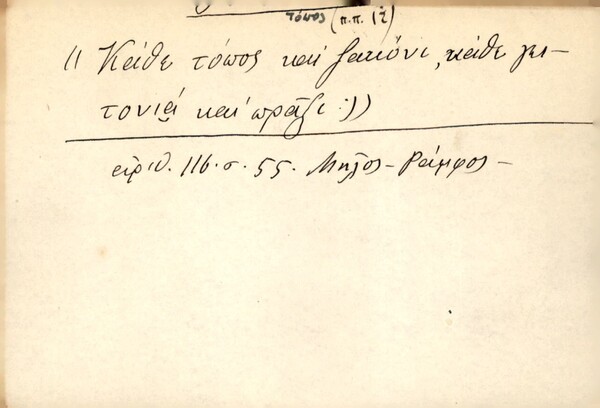 τόπος (π.π. 12)
"Κάθε τόπος καί ζακόνι, κάθε γει-
τονιά καί πρᾶξι."
ἀριθ. 116. σ. 55. Μῆλος - Ράμφος -